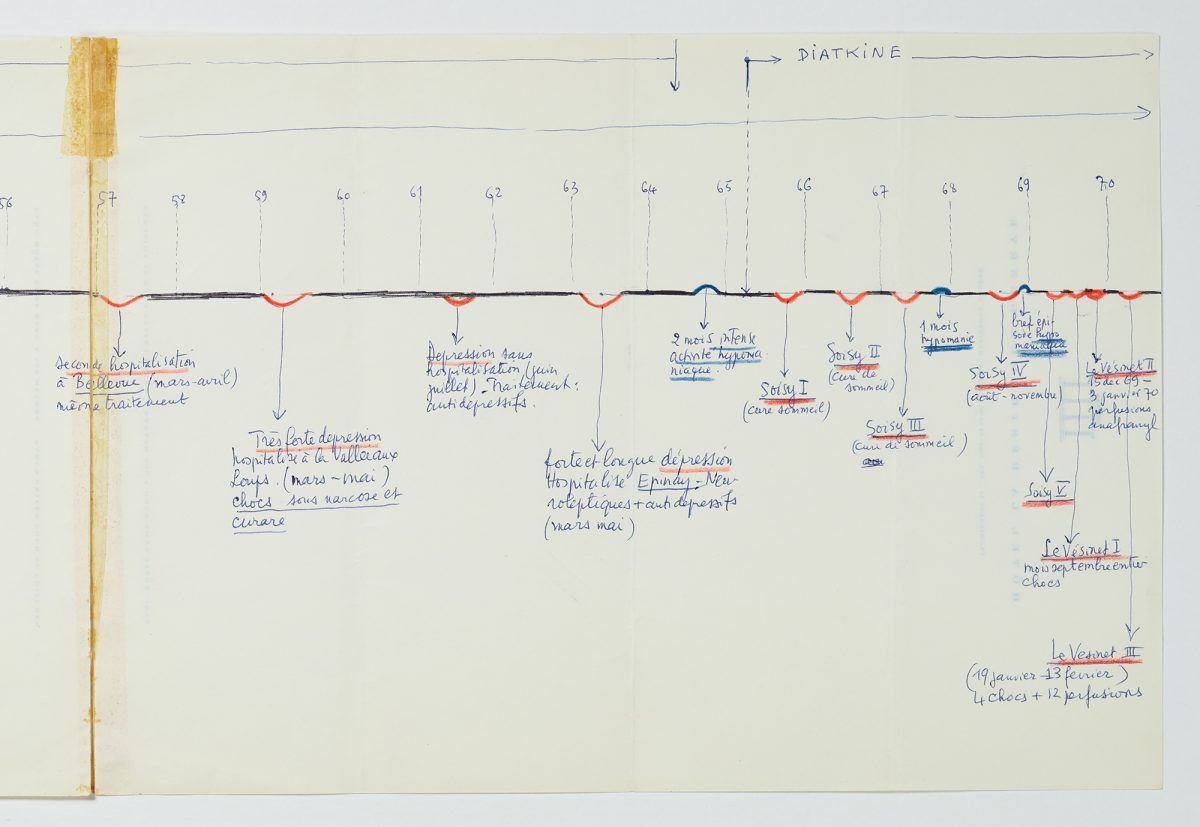 DIATKINE
56
57
58
59
60
61
62
63
64
65
66
67
68
69
70
seconde hospitalisation
à Bellevue (mars-avril)
même traitement
Très forte depression
hospitalisé à la Vallée aux
Loups. (mars-mai)
chocs sous narcose et
curare
Depression sans
hospitalisation (juin
juillet). Traitement:
antidepressifs.
forte et longue dépression
Hospitalisé Epinay. Neu-
roleptiques + antidépressifs
(mars mai)
2 mois intense
activité hypoma
niaque.
Soisy I
(cure sommeil)
Soisy II
(cure de
sommeil)
Soisy III
(cure de sommeil)
1 mois
hypomanie
Soisy IV
(août-novembre)
bref épi-
sode hypo
maniaque
Soisy V
Le Vésinet I
mois septembre entier
chocs
Le Vésinet II
15 dec 69 -
3 janvier 70
perfusions
anafranyl
Le Vesinet III
(19 janvier-13 fevrier)
4 chocs + 12 perfusions